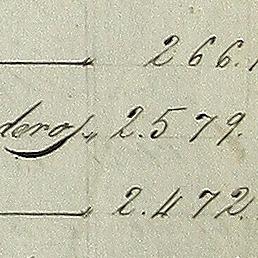 — „ 266.1
dero „ 2.579.
— „ 2.472.